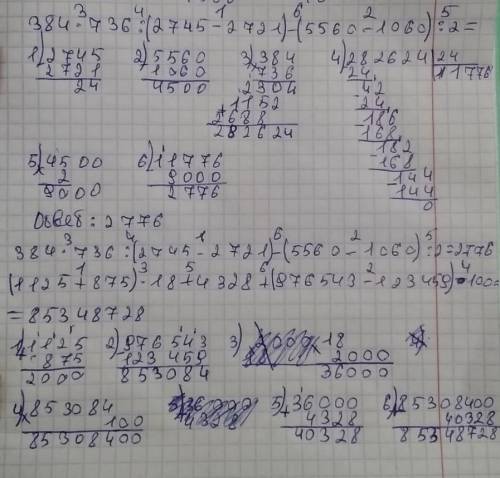 384·736:(2745-2721)-(5560-1060):2=
3 4 1 6 2 5
1) 2745 2) 5560 3) 384 4) 282624 | 24
2721 1060 736 24 11776
24 4500 2304 42
1152 -24
2688 186
282624 -168
182
-168
144
-144
0
5) 4500 6) 11776
2 9000
9000 2776
Ответ: 2776
384·736:(2745-2721)-(5560-1060):2=2776
3 4 1 6 2 5
(1125+875)·18+4328+(976543-123459)·100=
1 3 5 6 2 4
=85348728
1) 1125 2) 976543 3) 18
875 123459 2000
2000 853084 36000
4) 853084 5) 36000 6) 85308400
100 4328 40328
85308400 40328 85348728